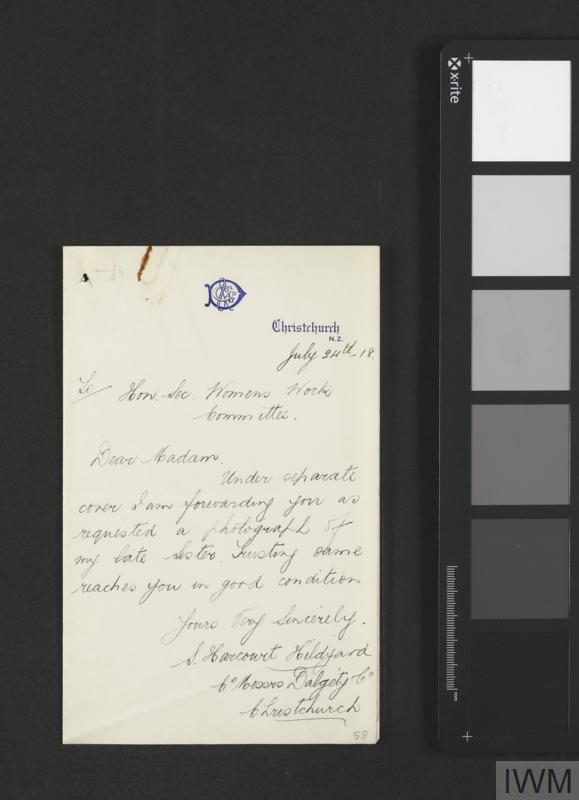 x-rite
Christchurch
N.Z.
July 24th - 18.
To Hon. Sec. Womens Work
Committee.
Dear Madam.
Under separate
cover I am forwarding you as
requested a photograph of
my late Sister. Trusting same
reaches you in good condition
Yours Very Sincerely.
S. Harcourt Hildyard
Co Messrs Dalgety Co
Christchurch
58
mm
IWM